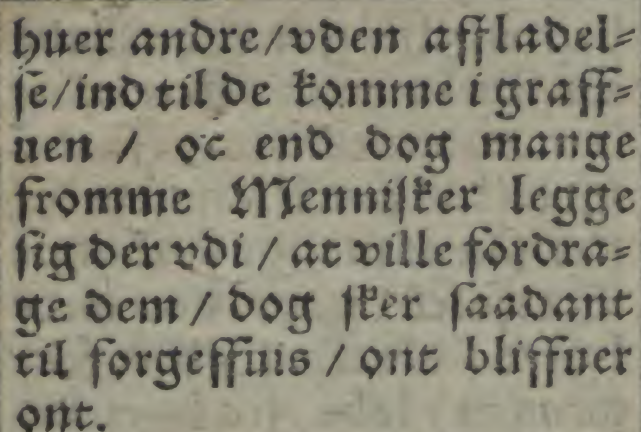 huer andre/vden affladel⸗
ſe/ind til de komme i graff⸗
uen / oc end dog mange
fromme Menniſker legge
ſig der vdi / at ville fordra⸗
ge dem / dog ſker ſaadant
til forgeffuis / ont bliffuer
ont.